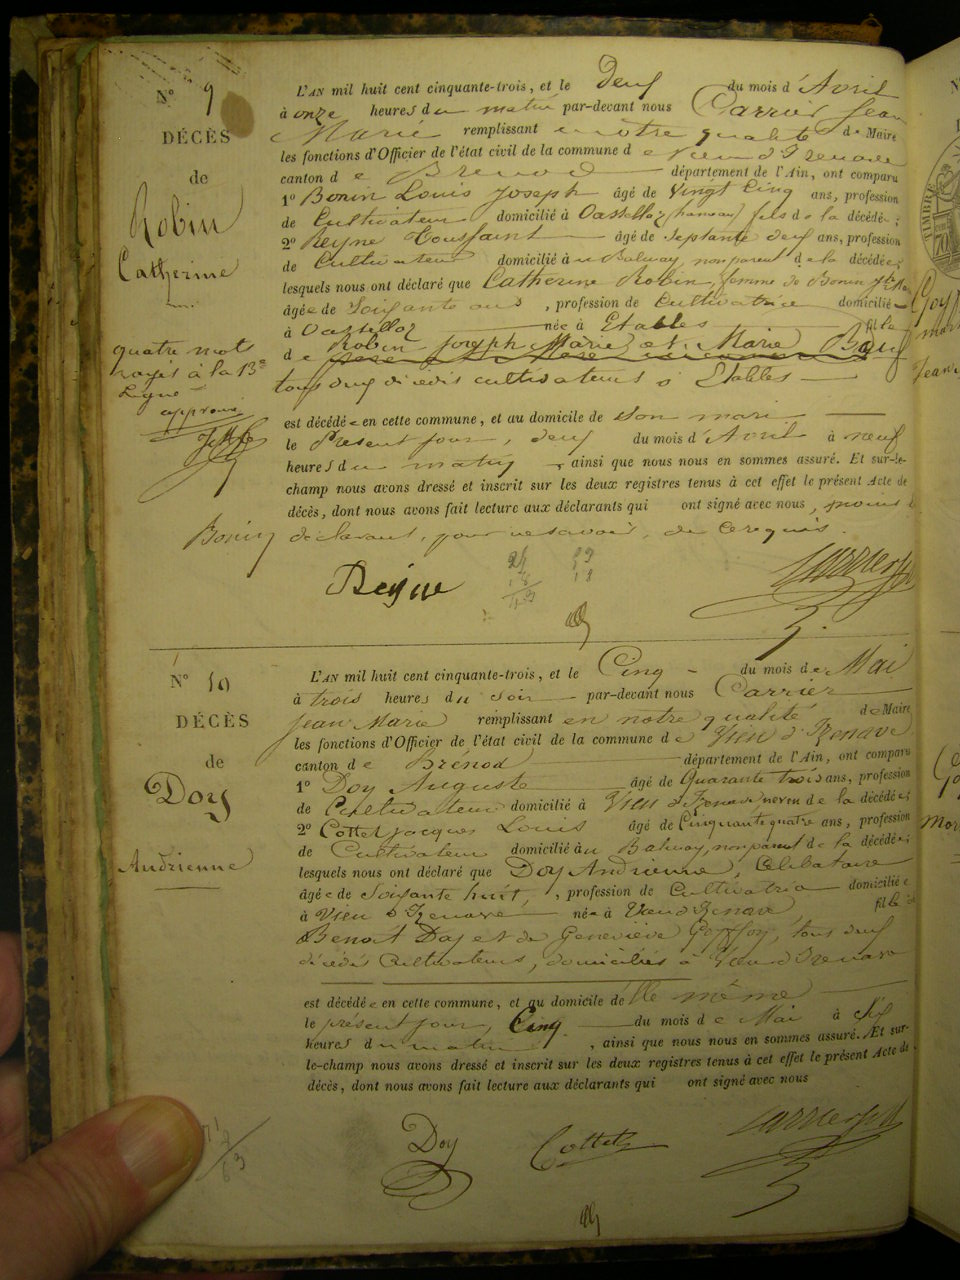 N° 9
DÉCÈS
de
Robin
Catherine
quatre mots
rayés à la 13e
Ligne
approuvé
L'AN mil huit cent cinquante-trois, et le Deux du mois d'Avril
à onze heures du matin par-devant nous Carrier Jean
Marie remplissant en notre qualité de Maire
les fonctions d'Officier de l'état civil de la commune de Vieu d'Izenave
canton de Brenod département de l'Ain, ont comparu
1° Bonin Louis Joseph âgé de Vingt Cinq ans, profession
de Cultivateur domicilié à Oassellaz fils de la décédée;
2° Reyne Toussaint âgé de Septante deux ans, profession
de Cultivateur domicilié à Balvay, non parent de la décédée;
lesquels nous ont déclaré que Catherine Robin, femme de Bonin
âgée de Soixante ans, profession de Cultivatrice domiciliée
à Oassellaz née à Etables fille
de Robin Joseph Marie et Marie
tous deux décédés cultivateurs à Etables
est décédée en cette commune, et au domicile de son mari
le Présent jour, deux du mois d'Avril à neuf
heures du matin, ainsi que nous nous en sommes assuré. Et sur-le-
champ nous avons dressé et inscrit sur les deux registres tenus à cet effet le présent Acte de
décès, dont nous avons fait lecture aux déclarants qui ont signé avec nous, moins
Bonin déclarant, pour ne savoir, de ce requis.
Reyne
N° 10
DÉCÈS
de
Doy
Andrienne
L'AN mil huit cent cinquante-trois, et le Cinq du mois de Mai
à trois heures du soir par-devant nous Carrier
Jean Marie remplissant en notre qualité de Maire
les fonctions d'Officier de l'état civil de la commune de Vieu d'Izenave
canton de Brénod département de l'Ain, ont comparu
1° Doy Auguste âgé de Quarante trois ans, profession
de Cultivateur domicilié à Vieu d'Izenave neveu de la décédée;
2° Cottet Jacques Louis âgé de Cinquante quatre ans, profession
de Cultivateur domicilié à Balvay, non parent de la décédée;
lesquels nous ont déclaré que Doy Andrienne, Célibataire
âgée de Soixante huit, profession de Cultivatrice domiciliée
à Vieu d'Izenave née à Vieu d'Izenave fille de
Benoit Doy et de Geneviève Goyffon, tous deux
décédés Cultivateurs, domiciliés à Vieu d'Izenave
est décédée en cette commune, et au domicile d'elle même
le présent jour, Cinq du mois de Mai à Six
heures du matin, ainsi que nous nous en sommes assuré. Et sur-
le-champ nous avons dressé et inscrit sur les deux registres tenus à cet effet le présent Acte de
décès, dont nous avons fait lecture aux déclarants qui ont signé avec nous
Doy Cottet